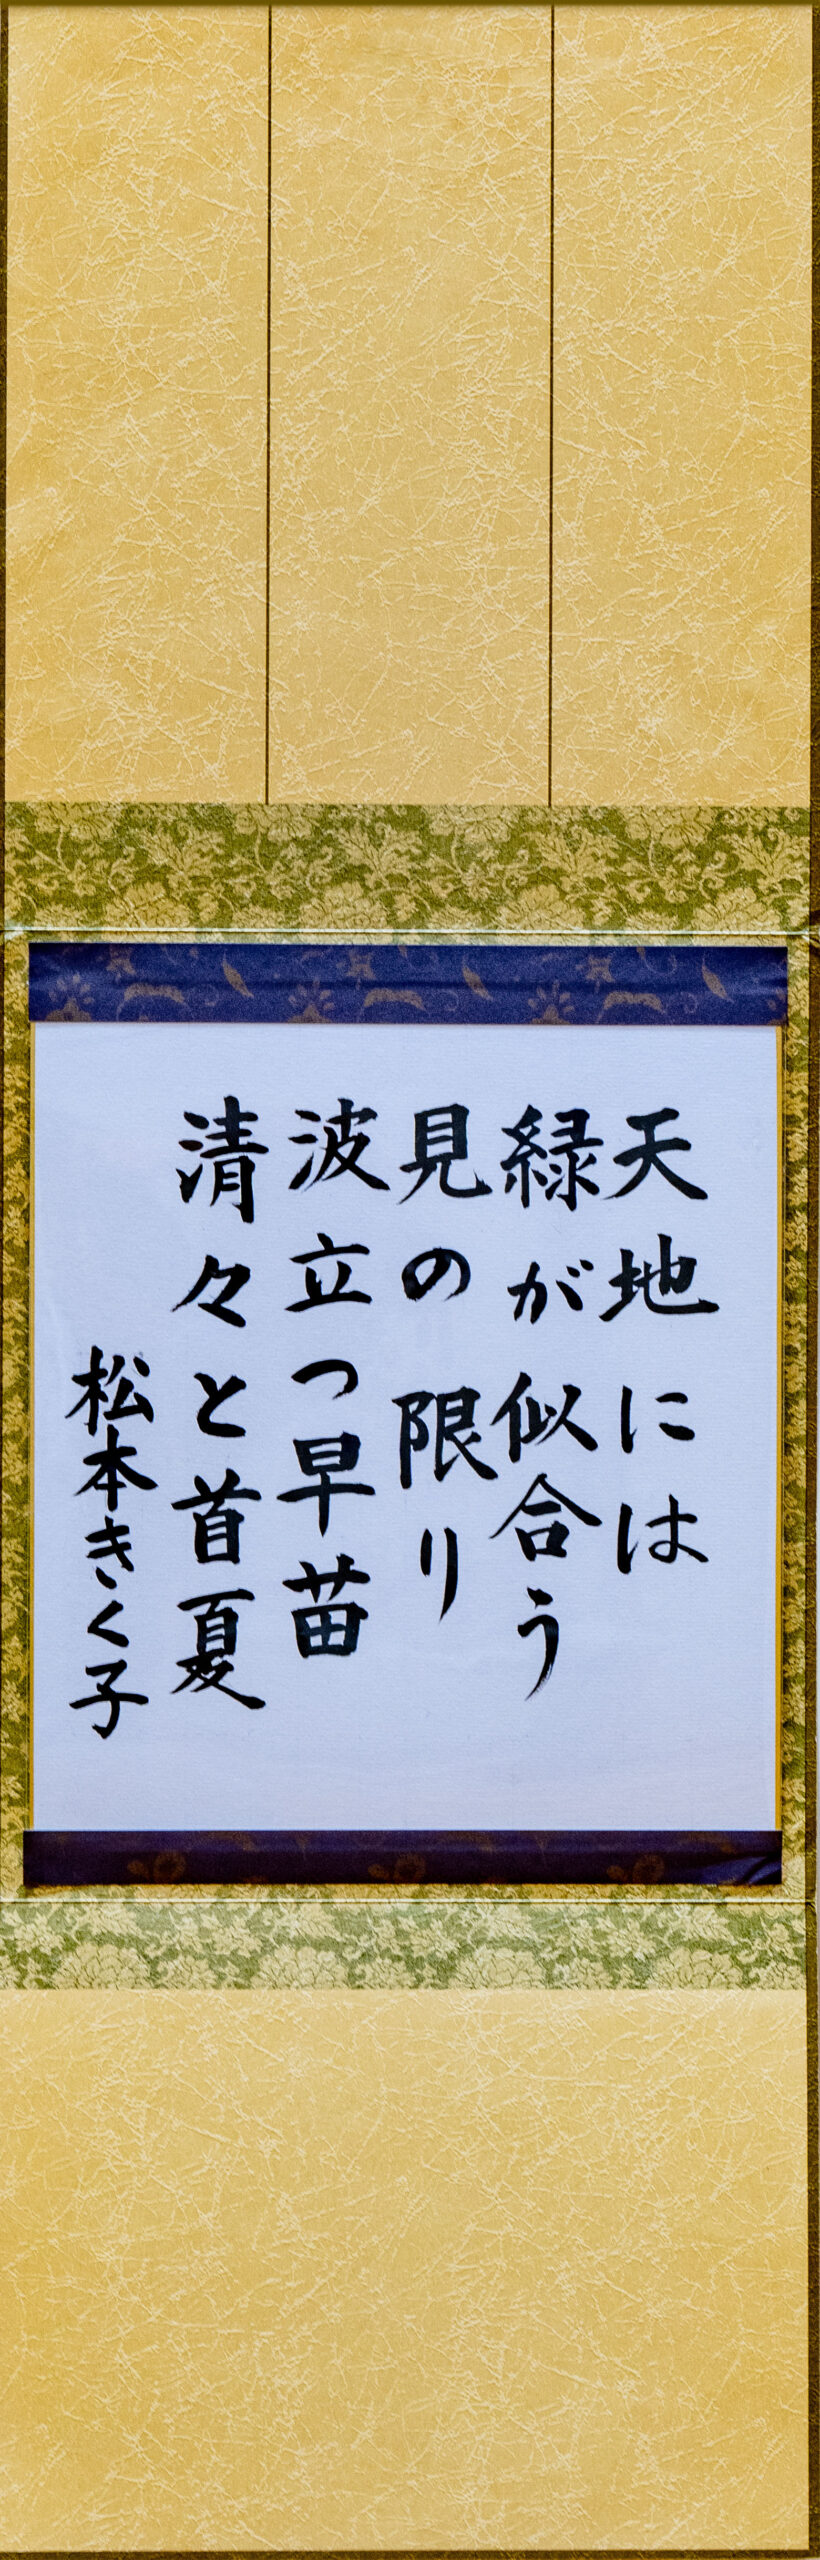 天地には
緑が似合う
見の限り
波立つ早苗
清々と首夏
松本きく子